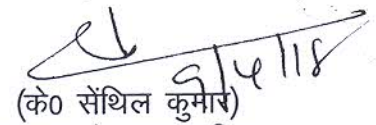 9/4/18
(के0 सेंथिल कुमार)